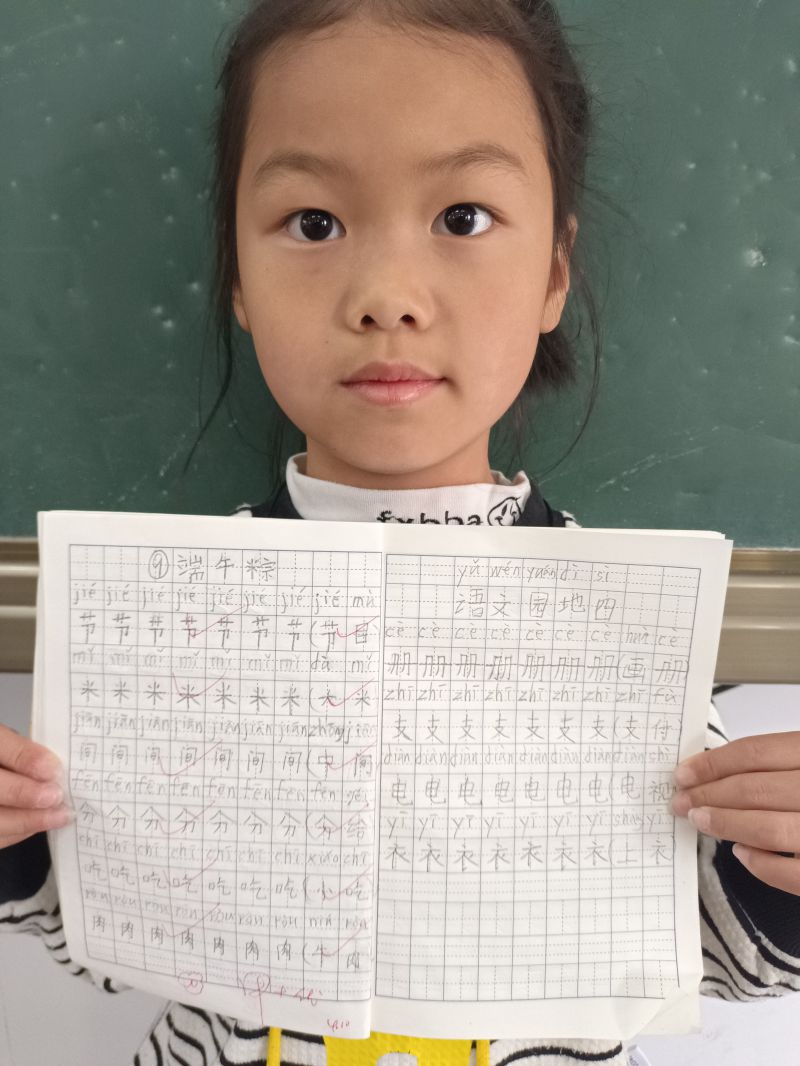 fxbba
⑨端午粽
jié jié jié jié jié jié jié jié mù
节节节节节节节(节目
mǐ mǐ mǐ mǐ mǐ mǐ mǐ dà mǐ
米米米米米米米(大米
jiān jiān jiān jiān jiān jiān jiān zhōng jiān
间间间间间间间(中间
fēn fēn fēn fēn fēn fēn fēn fēn
分分分分分分分(分给
chī chī chī chī chī chī chī xiǎo chī
吃吃吃吃吃吃吃(小吃
ròu ròu ròu ròu ròu ròu ròu niú ròu
肉肉肉肉肉肉肉(牛肉
yǔ wén yuán dì sì
语文园地四
cè cè cè cè cè cè cè huà cè
册册册册册册册(画册)
zhī zhī zhī zhī zhī zhī zhī zhī fù
支支支支支支支(支付)
diàn diàn diàn diàn diàn diàn diàn diàn shì
电电电电电电电(电视)
yī yī yī yī yī yī yī shàng yī
衣衣衣衣衣衣衣(上衣)